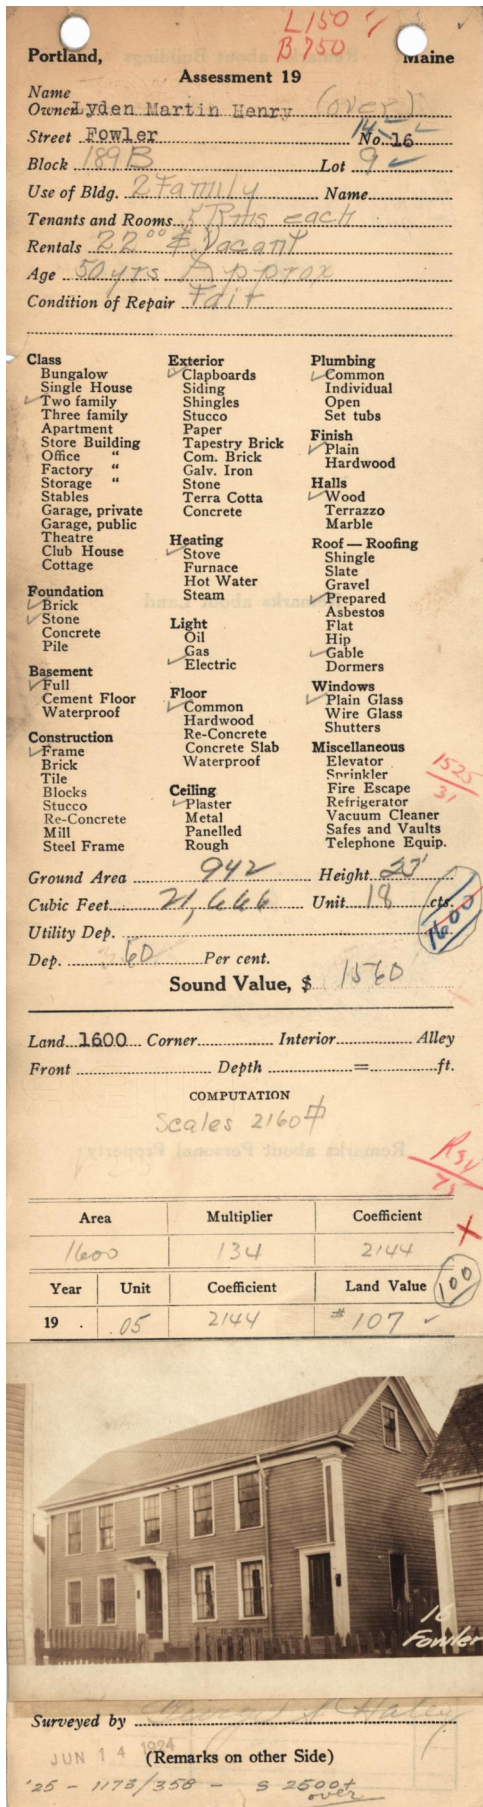 L150
B750
Portland, Maine
Assessment 19
Name
Owner Lyden Martin Henry (over)
Street Fowler 14- No. 16
Block 189B Lot 9
Use of Bldg. 2 Family Name
Tenants and Rooms 5 Rms each
Rentals 22⁰⁰ & Vacant
Age 50 yrs Approx
Condition of Repair Fair
Class
Bungalow
Single House
✓ Two family
Three family
Apartment
Store Building
Office "
Factory "
Storage "
Stables
Garage, private
Garage, public
Theatre
Club House
Cottage
Foundation
✓ Brick
✓ Stone
Concrete
Pile
Basement
✓ Full
Cement Floor
Waterproof
Construction
✓ Frame
Brick
Tile
Blocks
Stucco
Re-Concrete
Mill
Steel Frame
Exterior
✓ Clapboards
Siding
Shingles
Stucco
Paper
Tapestry Brick
Com. Brick
Galv. Iron
Stone
Terra Cotta
Concrete
Heating
✓ Stove
Furnace
Hot Water
Steam
Light
Oil
Gas
✓ Electric
Floor
✓ Common
Hardwood
Re-Concrete
Concrete Slab
Waterproof
Ceiling
✓ Plaster
Metal
Panelled
Rough
Plumbing
✓ Common
Individual
Open
Set tubs
Finish
✓ Plain
Hardwood
Halls
✓ Wood
Terrazzo
Marble
Roof — Roofing
Shingle
Slate
Gravel
✓ Prepared
Asbestos
Flat
Hip
✓ Gable
Dormers
Windows
✓ Plain Glass
Wire Glass
Shutters
Miscellaneous
Elevator
Sprinkler
Fire Escape
Refrigerator
Vacuum Cleaner
Safes and Vaults
Telephone Equip.
1525
31
Ground Area 942 Height 23'
Cubic Feet 21,666 Unit 18 cts.
1600
Utility Dep.
Dep. 60 Per cent.
Sound Value, $ 1560
Land 1600 Corner Interior Alley
Front Depth = ft.
COMPUTATION
Scales 2160
Area Multiplier Coefficient
1600 134 2144
Year Unit Coefficient Land Value 100
19 . .05 2144 $107 ✓
16
Fowler
Surveyed by
JUN 14 1924
(Remarks on other Side)
'25 - 1173/358 - S 2500+
over